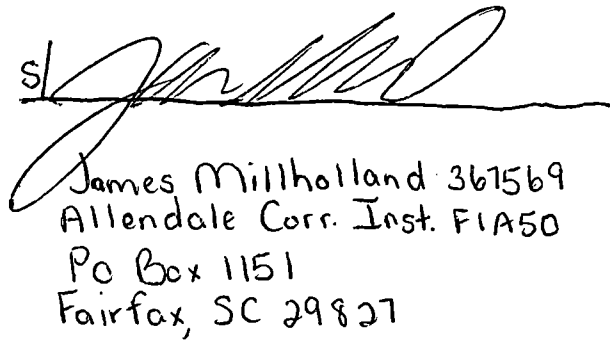 s/
James Millholland 367569
Allendale Corr. Inst. F1A50
Po Box 1151
Fairfax, SC 29827